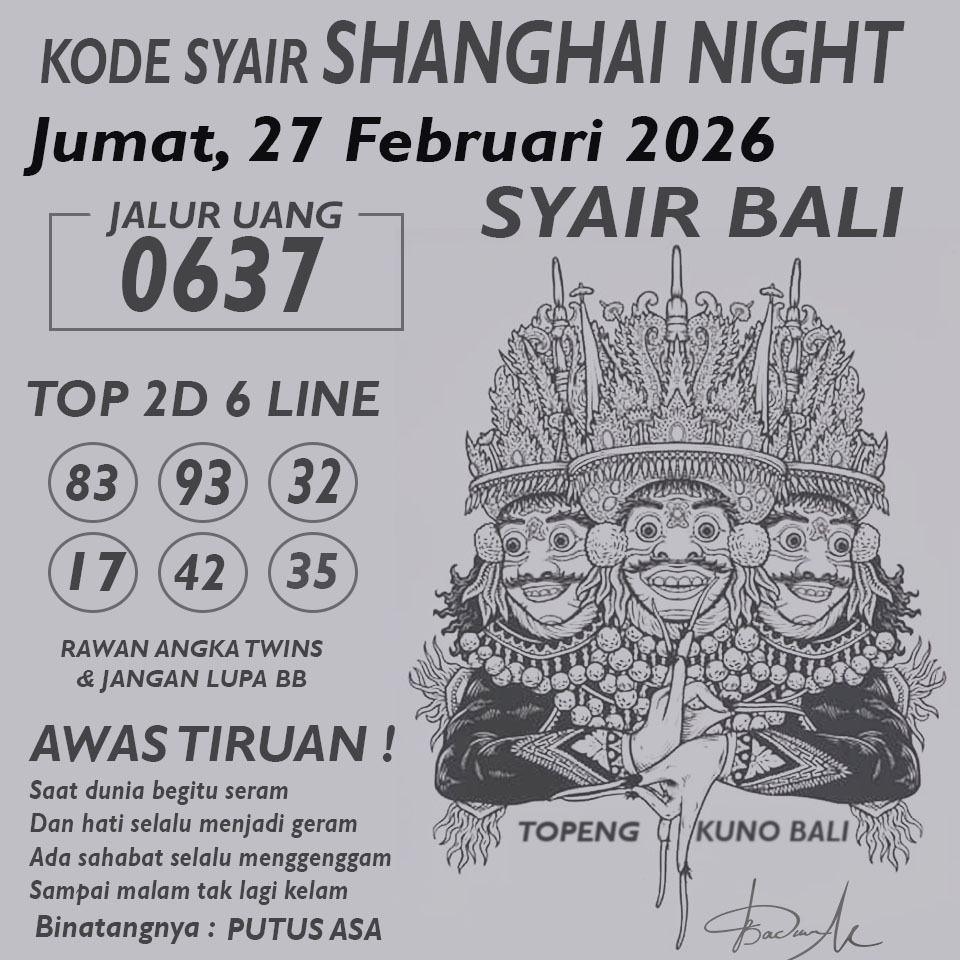 KODE SYAIR SHANGHAI NIGHT
Jumat, 27 Februari 2026
SYAIR BALI
JALUR UANG
0637
TOP 2D 6 LINE
83 93 32
17 42 35
RAWAN ANGKA TWINS
& JANGAN LUPA BB
AWAS TIRUAN !
Saat dunia begitu seram
Dan hati selalu menjadi geram
Ada sahabat selalu menggenggam
Sampai malam tak lagi kelam
Binatangnya : PUTUS ASA
TOPENG KUNO BALI